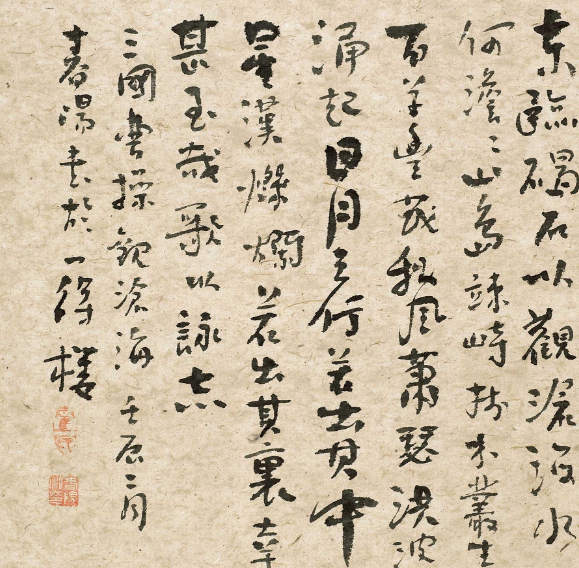 東臨碣石以觀滄海水
何澹〻山島竦峙樹木叢生
百草豐茂秋風蕭瑟洪波
涌起日月之行若出其中
星漢燦爛若出其裏幸
甚至哉歌以詠志
三國曹操觀滄海壬辰二月
春陽書於一得樓